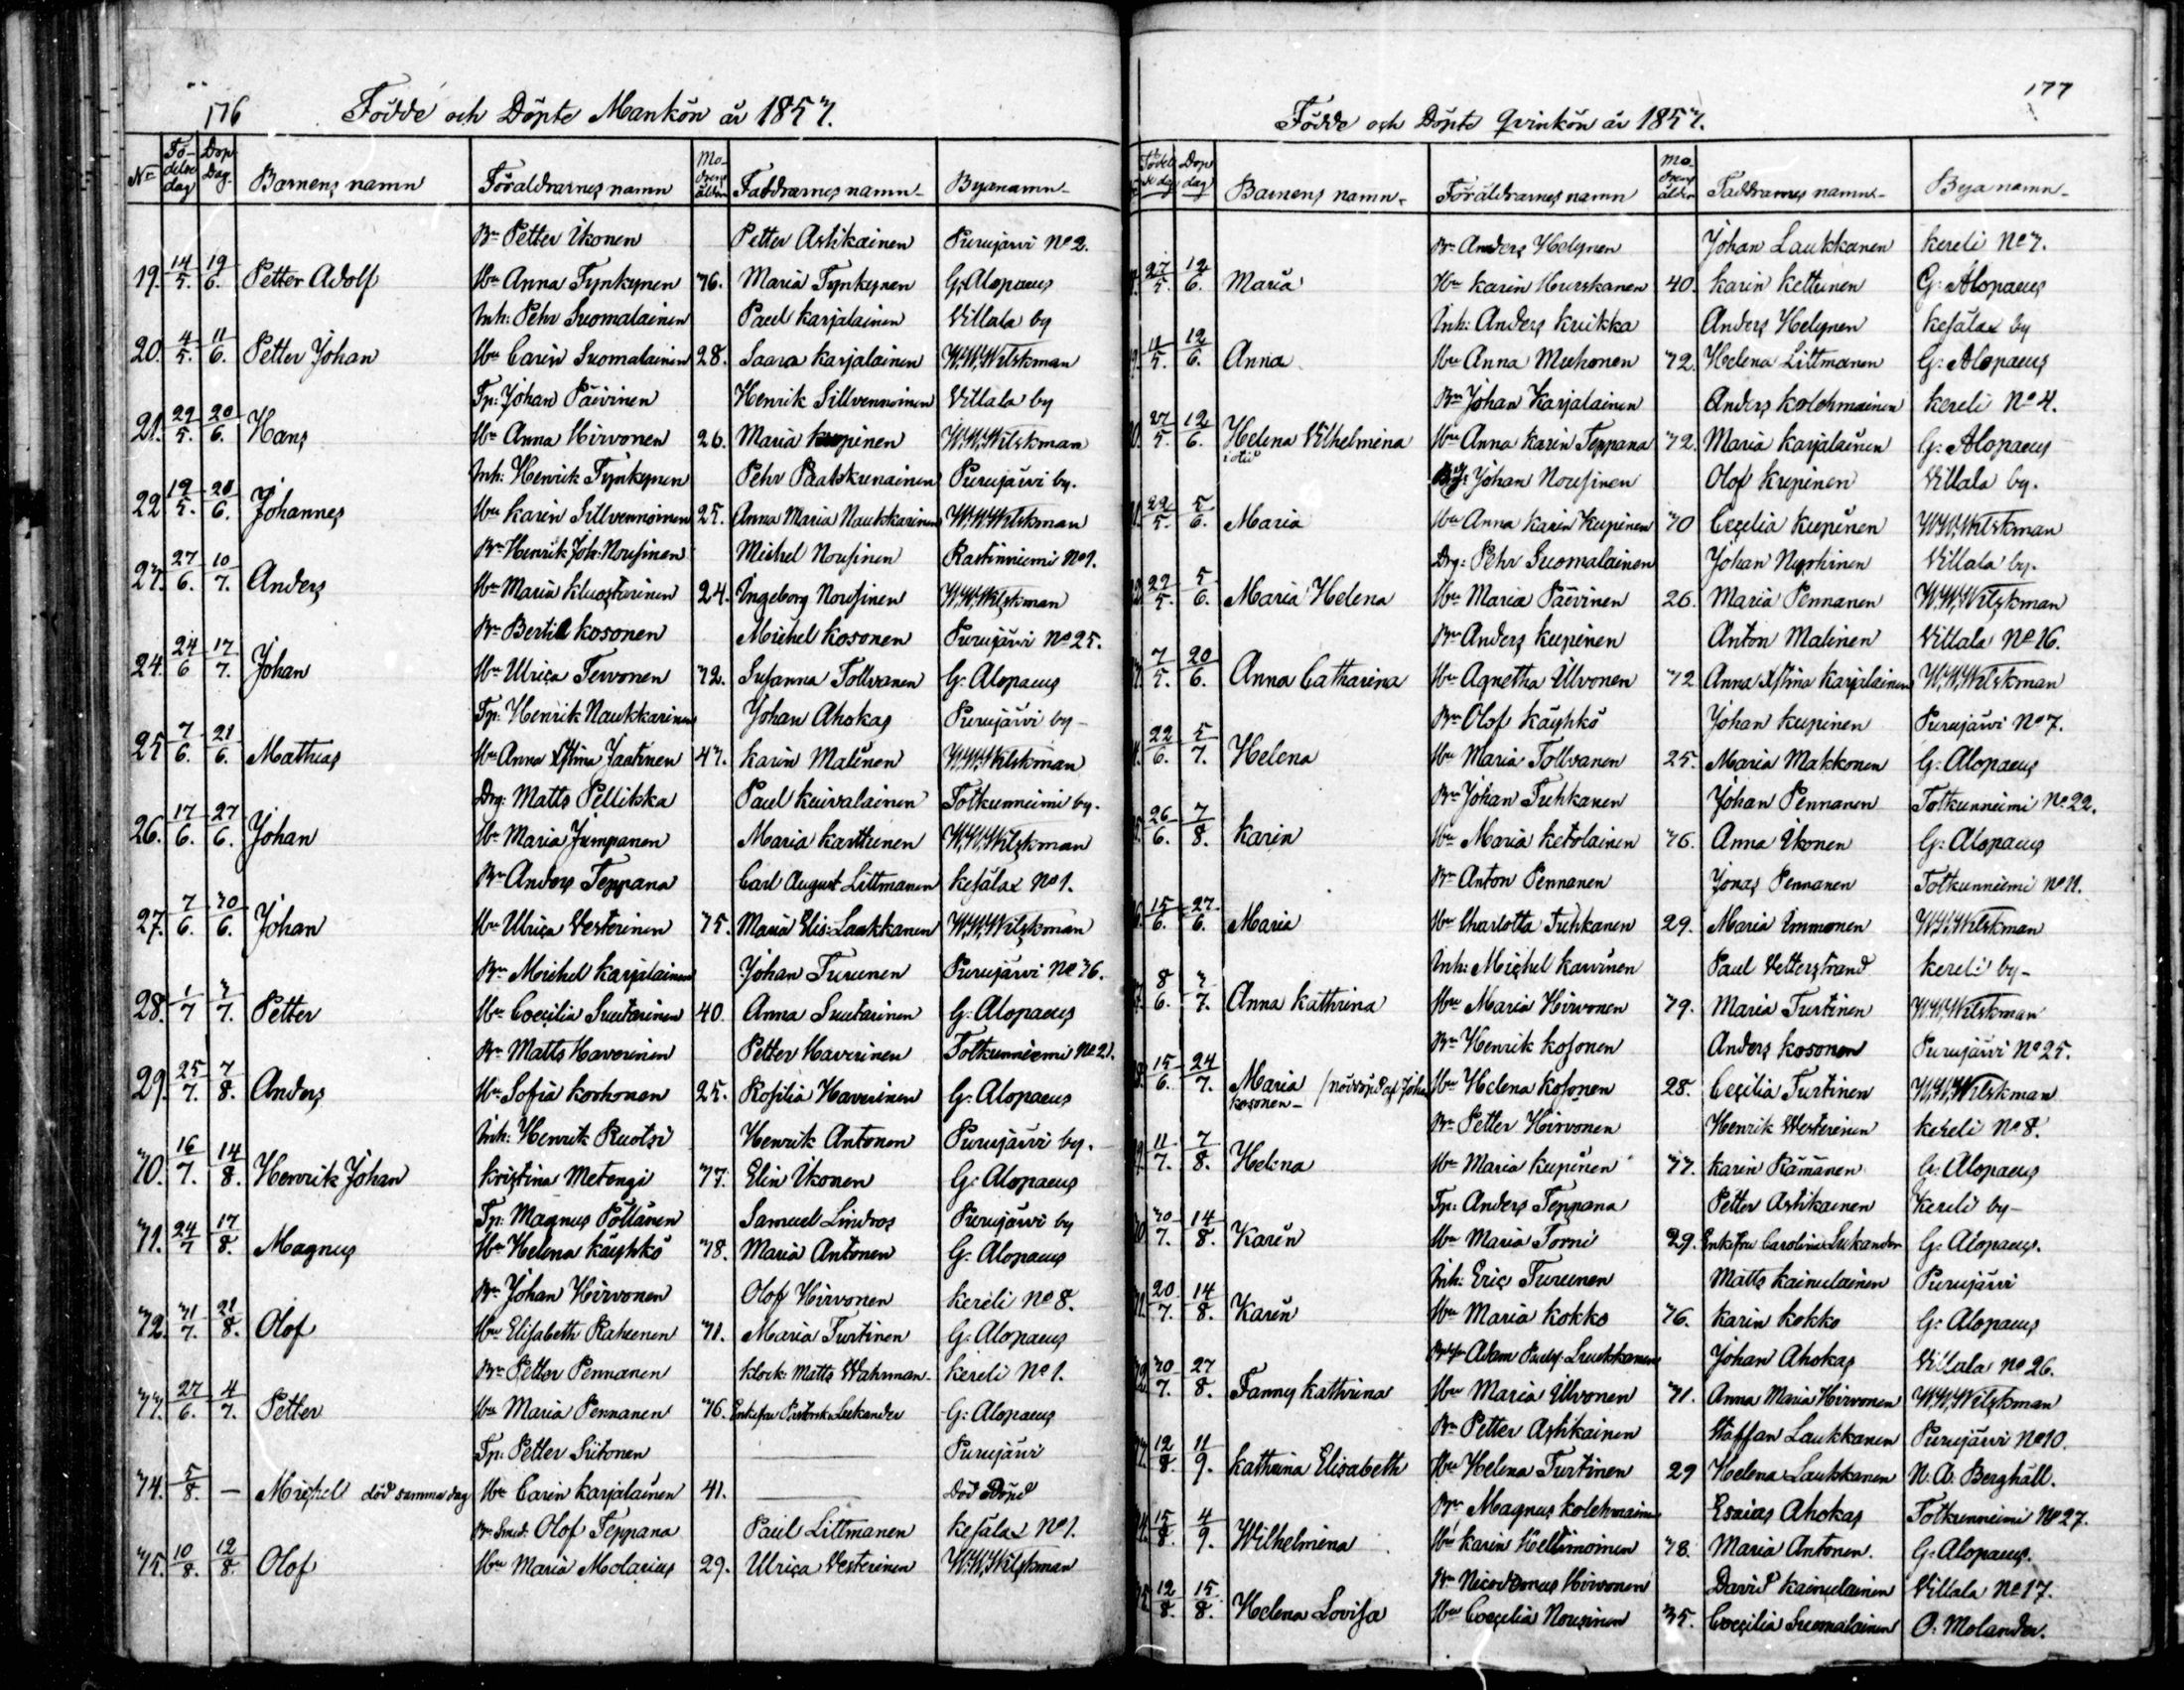 176
Födde och Döpte Mankön år 1857.
No Födelsedag Dop Dag. Barnens namn Föraldrarnes namn Modrens ålder Faddrarnes namn Byanamn
Bn Petter Ikonen Petter Asikainen Purujärvi No 2.
19. 14/5. 19/6. Petter Adolf Hu Anna Tynkynen 36. Maria Tynkynen G. Alopaeus
Inh: Pehr Suomalainen Paul Karjalainen Villala by
20. 4/5. 11/6. Petter Johan Hu Carin Suomalainen 28. Saara Karjalainen W.W. Wilskman
Tp: Johan Päivinen Henrik Sillvennoinen Villala by
21. 29/5. 20/6. Hans Hu Anna Hirvonen 26. Maria Kupinen W.W. Wilskman
Inh: Henrik Tynkynen Pehr Paatskunainen Purujärvi by.
22 12/5. 20/6. Johannes Hu Karin Sillvennoinen 25. Anna Maria Naukkarinen W.W. Wilskman
Bn Henrik Joh: Nousinen Michel Nousinen Rastinniemi No 1.
23. 27/6. 10/7. Anders Hu Maria Kluostarinen 24. Ingeborg Nousinen W.W. Wilskman
Bn Bertil Kosonen Michel Kosonen Purujärvi No 25.
24. 24/6 17/7. Johan Hu Ulrica Tervonen 32. Susanna Tollvanen G. Alopaeus
Tp: Henrik Naukkarinen Johan Ahokas Purujärvi by
25 7/6. 21/6. Mathias Hu Anna Xstina Jaatinen 43. Karin Malinen W.W. Wilskman
Drg: Matts Pellikka Paul Kuivalainen Totkunniemi by.
26. 17/6. 27/6. Johan Hu Maria Jumpanen Maria Karttunen W.W. Wilskman
Bn Anders Teppana Carl August Littmanen Kesälax No 1.
27. 7/6. 30/6. Johan Hu Ulrica Vesterinen 35. Maria Elis: Laukkanen W.W. Wilskman
Bn Michel Karjalainen Johan Turunen Purujärvi No 36.
28. 1/7 3/7. Petter Hu Coecilia Suutarinen 40. Anna Suutarinen G. Alopaeus
Bn Matts Haverinen Petter Haverinen Totkunniemi No 21.
29. 25/7. 7/8. Anders Hu Sofia Korhonen 25. Rosilia Haverinen G. Alopaeus
Inh: Henrik Ruotsi Henrik Antonen Purujärvi by.
30. 16/7. 14/8. Henrik Johan Kristina Metengi 33. Elin Ikonen G. Alopaeus
Tp: Magnus Pöllänen Samuel Lindros Purujärvi by
31. 24/7 17/8. Magnus Hu Helena Käyhkö 38. Maria Antonen G. Alopaeus
Bn Johan Hirvonen Olof Hirvonen Kereli No 8.
32. 31/7. 21/8. Olof Hu Elisabeth Rahunen 31. Maria Turtinen G. Alopaeus
Bn Petter Pennanen Klock: Matts Wahrman Kereli No 1.
33. 27/6. 4/7. Petter Hu Maria Pennanen 36. Enkefru Lukander G. Alopaeus
Tp: Petter Siitonen Purujärvi
34. 5/8. — Michel död samma dag Hu Carin Karjalainen 41. Död Döpt
Bn Smed: Olof Teppana Paul Littmanen Kesälax No 1.
35. 10/8. 12/8. Olof Hu Maria Molarius 29. Ulrica Vesterinen W.W. Wilskman
177
Födde och Döpte Qvinkön år 1857.
Födelsedag Dop dag Barnens namn Föräldrarnes namn Modrens ålder Faddrarnes namn Bya namn
Bn Anders Helynen Johan Laukkanen Kereli No 7.
27/5. 12/6. Maria Hu Karin Hurskanen 40. Karin Kettunen G. Alopaeus
Inh: Anders Kriikka Anders Helynen Kesälax by
11/5. 12/6. Anna Hu Anna Muhonen 32. Helena Littmanen G. Alopaeus
Bn Johan Karjalainen Anders Kolehmainen Kereli No 4.
27/5. 12/6. Helena Vilhelmina Hu Anna Karin Teppana 32. Maria Karjalainen G. Alopaeus
Johan Nousinen Olof Kupinen Villala by.
22/5. 5/6. Maria Hu Anna Karin Kupinen 30 Cecilia Kupinen W.W. Wilskman
Drg: Pehr Suomalainen Johan Nyrhinen Villala by.
22/5. 5/6. Maria Helena Hu Maria Päivinen 26. Maria Pennanen W.W. Wilskman
Bn Anders Kupinen Anton Malinen Villala No 16.
7/5. 20/6. Anna Catharina Hu Agnetha Ullvonen 32 Anna Xstina Karjalainen W.W. Wilskman
Bn Olof Käyhkö Johan Kupinen Purujärvi No 7.
22/6. 5/7. Helena Hu Maria Tollvanen 25. Maria Makkonen G. Alopaeus
Bn Johan Tuhkanen Johan Pennanen Totkunniemi No 22.
26/6. 7/8. Karin Hu Maria Ketolainen 36. Anna Ikonen G. Alopaeus
Bn Anton Pennanen Jonas Pennanen Totkunniemi No 11.
15/6. 27/6. Maria Hu Charlotta Tuhkanen 29. Maria Immonen W.W. Wilskman
Inh: Michel Karvinen Paul Vetterstrand Kereli by
8/6. 3/7. Anna Kathrina Hu Maria Hirvonen 39. Maria Turtinen W.W. Wilskman
Bn Henrik Kosonen Anders Kosonen Purujärvi No 25.
15/6. 24/7. Maria /nöddöpt af Johan Kosonen Hu Helena Kosonen 28. Cecilia Turtinen W.W. Wilskman
Bn Petter Hirvonen Henrik Westerinen Kereli No 8.
11/7. 7/8. Helena Hu Maria Kupinen 33. Karin Rämänen G. Alopaeus
Tp: Anders Teppana Petter Asikainen Kereli by
30/7. 14/8. Karin Hu Maria Torni 29. Enkefru Carolina Lukander G. Alopaeus.
Inh: Eric Turunen Matts Kainulainen Purujärvi
20/7. 14/8. Karin Hu Maria Kokko 36. Karin Kokko G. Alopaeus
Adam Laukkanen Johan Ahokas Villala No 26.
30/7. 27/8. Fanny Kathrina Hu Maria Ullvonen 31. Anna Maria Hirvonen W.W. Wilskman
Bn Petter Asikainen Staffan Laukkanen Purujärvi No 10.
12/8. 11/9. Kathrina Elisabeth Hu Helena Turtinen 29 Helena Laukkanen N. A. Berghäll.
Bn Magnus Kolehmainen Esaias Ahokas Totkunniemi No 27.
15/8. 4/9. Wilhelmina Hu Karin Heltimoinen 38. Maria Antonen. G. Alopaeus.
Bn Nicodemus Hirvonen David Kainulainen Villala No 17.
12/8. 15/8. Helena Lovisa Hu Coecilia Nousinen 35. Coecilia Suomalainen O. Molander.